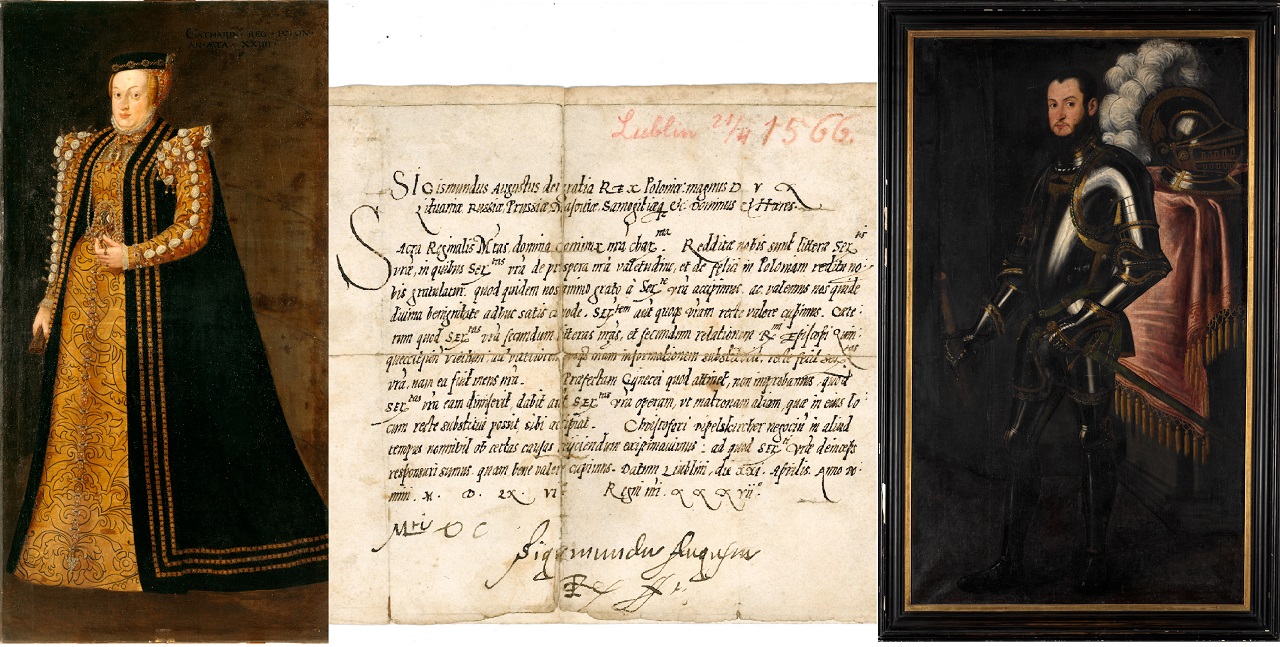 CATHARIN · REG · POLON ·
AN · ÆTA · XXIIII ·
Lublin 21/4 1566.
SIGismundus Augustus dei gratia REX Poloniæ magnus D V X
Lituaniæ Russiæ, Prussiæ Masoviæ, Samogitiæq &c. Dominus & Hæres
SAcra Reginalis Mtas domina coniunx mea char Redditæ nobis sunt litteræ
vræ, in quibus vra de prospera et de felici in Poloniam reditu no-
bis gratulatur. quod quidem nos animo grato à vra accepimus. ac valemus nos quidē
divina benignitate adhuc satis commode. autē quoqȝ vram recte valere cupimus. Cæte-
rum quod vra secundum litteras nras, et secundum relationem Episcopi Quin-
informationem substituit, recte fecit
vra, nam ea fuit mens nra. Præfectam Gynecei quod attinet, non improbamus, quod
vra eam dimiserit, dabit aūt vra operam, ut matronam aliam, quæ in eius lo-
cum recte substitui possit sibi accipiat. Christofori negociū in aliud
tempus nonnihil ob certas causas reijciendum existimavimus: ad quod vræ deinceps
responsuri sumus. quam bene valere cupimus. Datum Liublini, die XXI. Aprilis. Anno D
mini. M. D. LX. VI. Regni nri. XXXVII°
Sigismundus Augustus
Rex